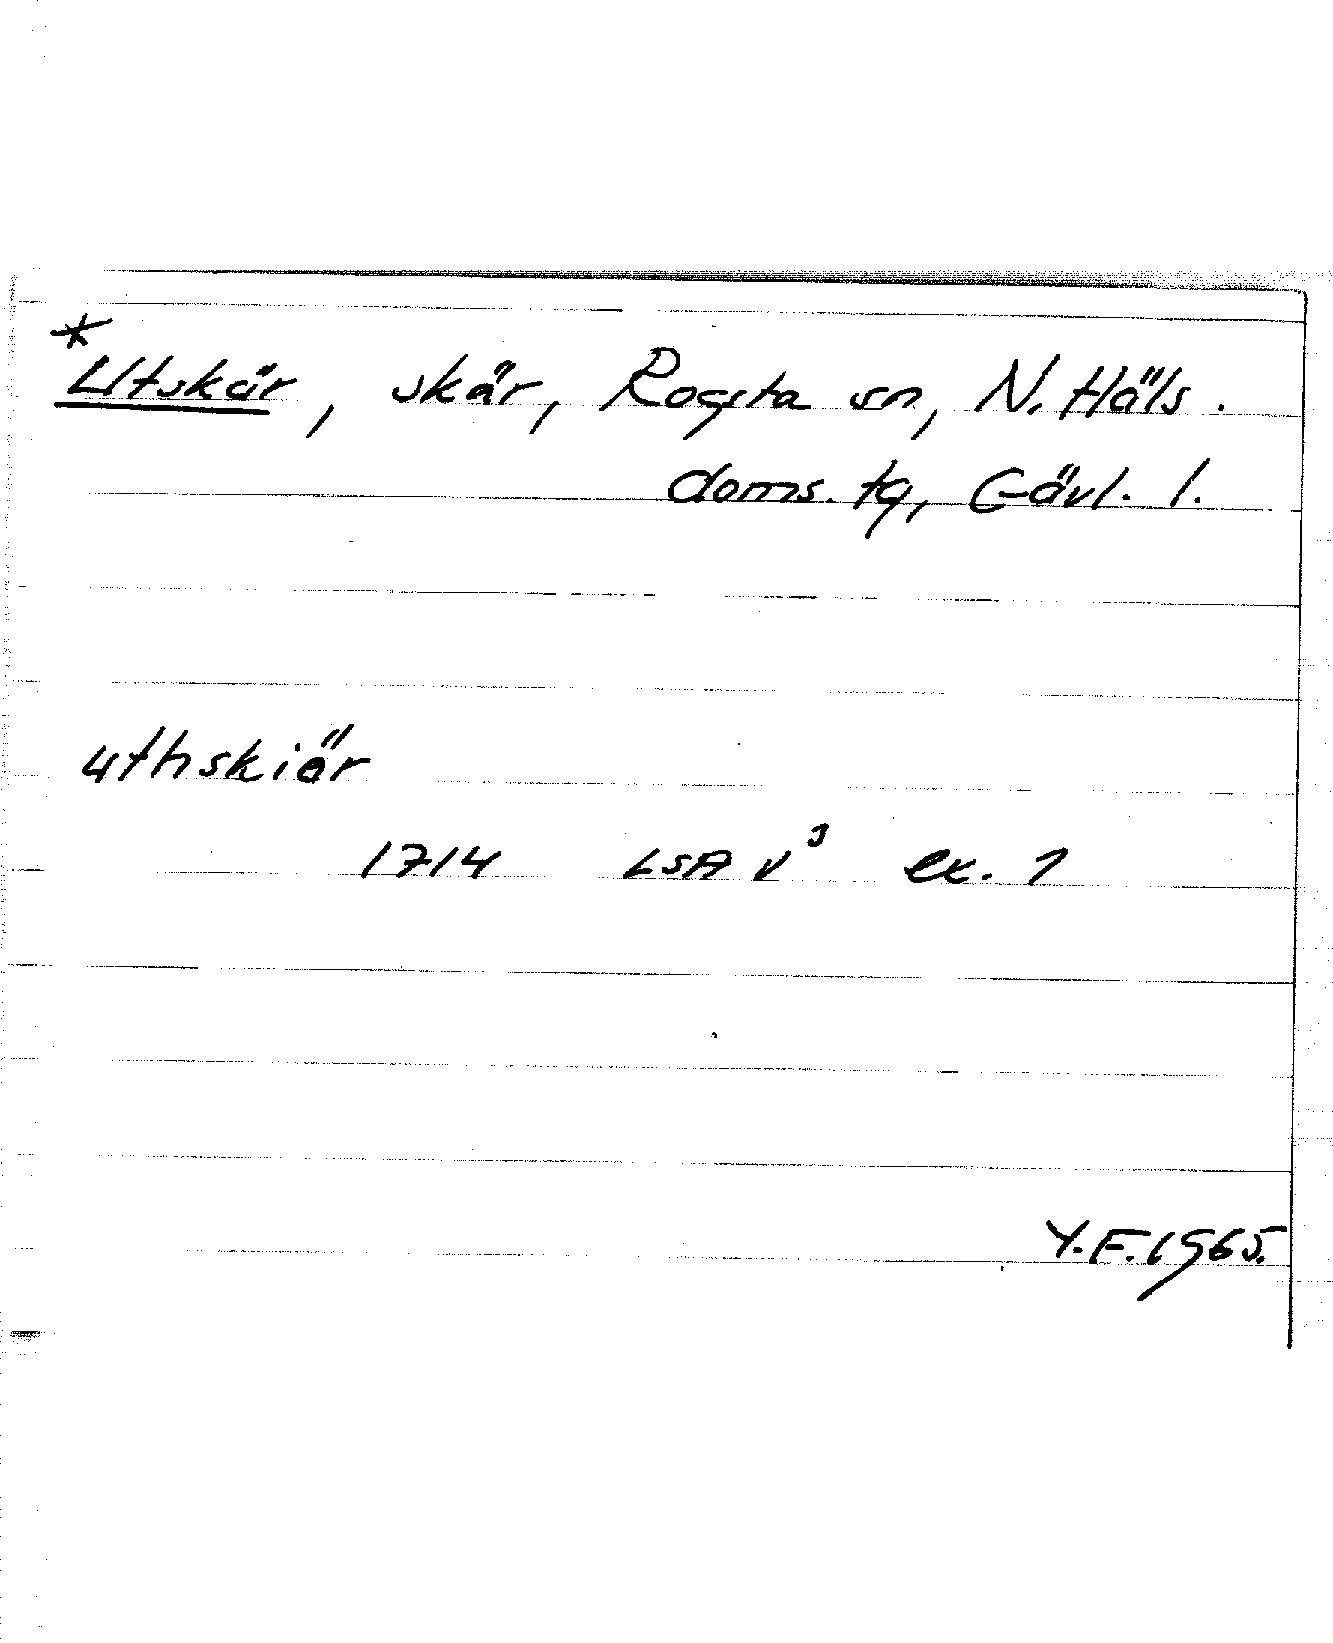 *Utskär, skär, Rogsta sn, N. Häls.
doms. tg, Gävl. l.
uthskiär
1714 LSA V³ ex. 1
Y.F. 1965.